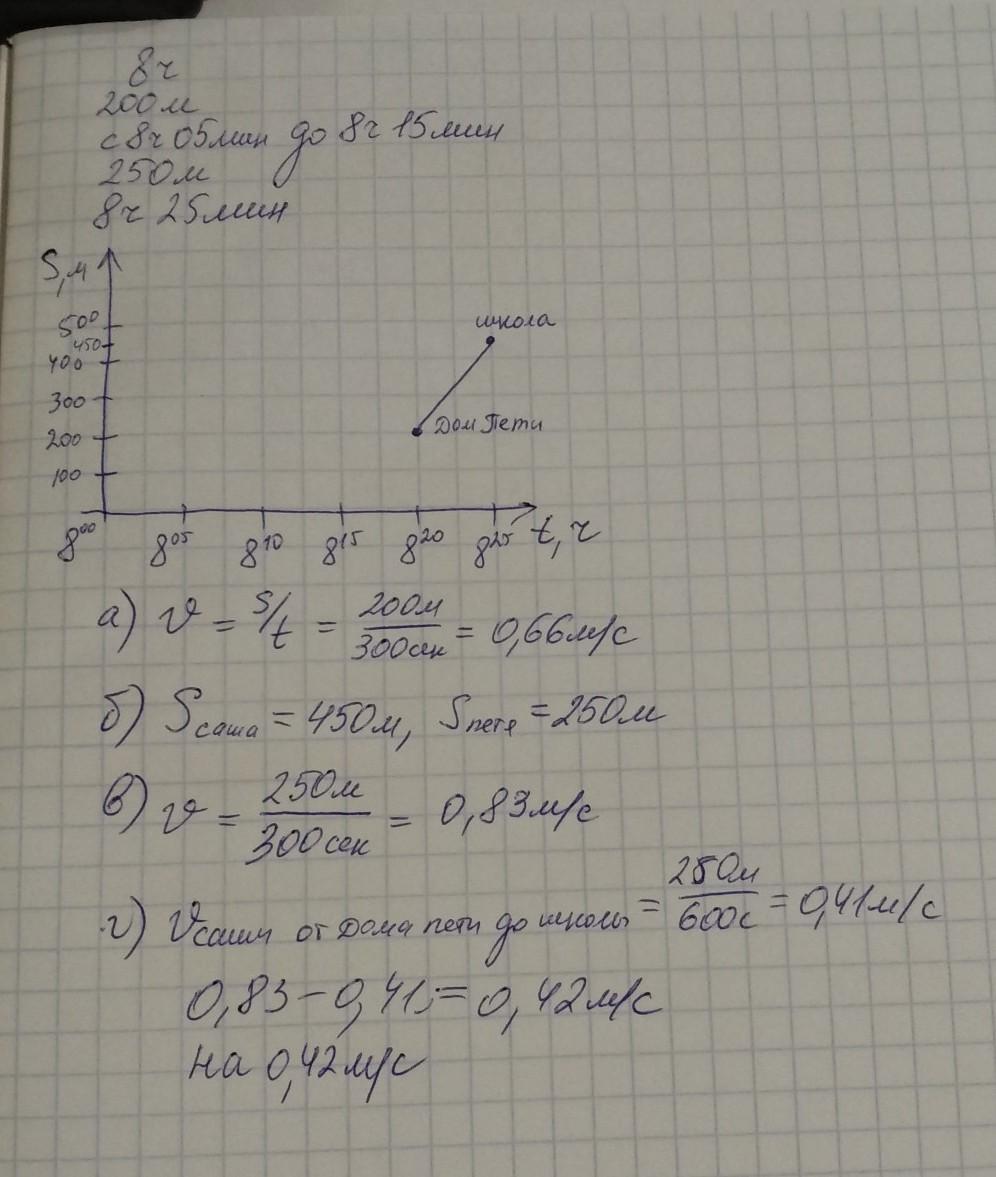 8ч
200м
с 8ч 05мин до 8ч 15мин
250м
8ч 25мин
S,м
500
450
400
300
200
100
школа
Дом Пети
8⁰⁰ 8⁰⁵ 8¹⁰ 8¹⁵ 8²⁰ 8²⁵ t,ч
а) v = S/t = 200м/300сек = 0,66м/с
б) Sсаша = 450м, Sпетя = 250м
в) v = 250м/300сек = 0,83м/с
г) vсаши от дома пети до школы = 250м/600с = 0,41м/с
0,83 - 0,41 = 0,42м/с
на 0,42м/с